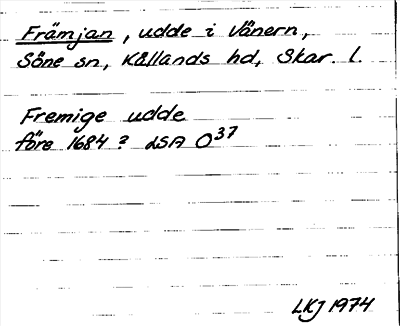 Främjan, udde i Vänern,
Söne sn, Kållands hd, Skar. l.
Fremige udde
före 1684? LSA O37
LKJ 1974